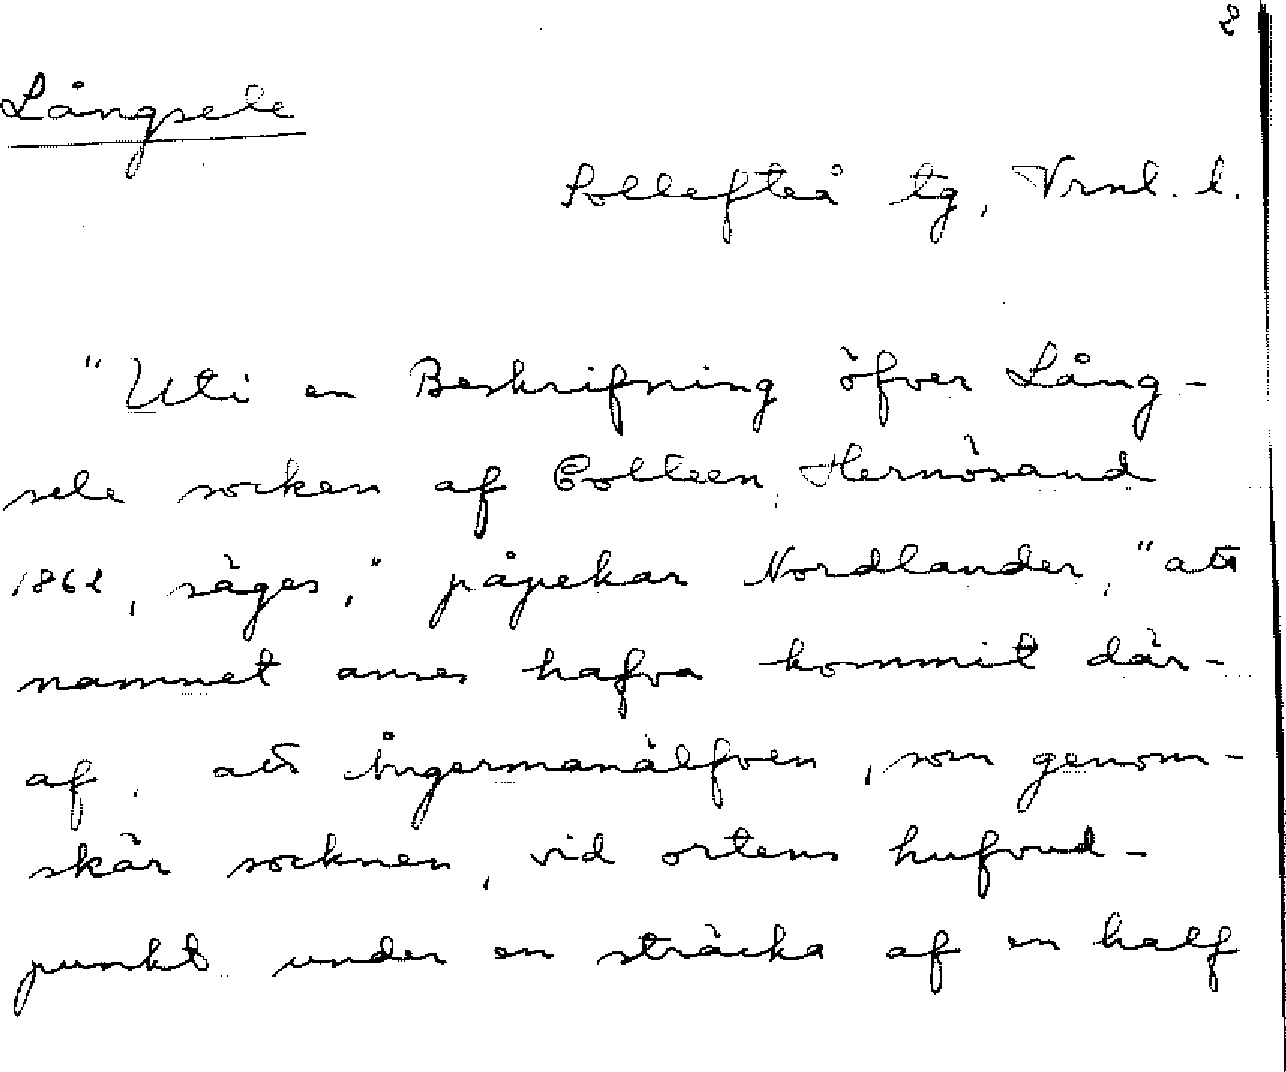 2
Långsele
Sollefteå tg, Vrnl. l.
"Uti en Beskrifning öfver Lång-
sele socken af Colleen, Hernösand
1862, säges," påpekar Nordlander, "att
namnet anses hafva kommit där-
af, att Ångermanälfven, som genom-
skär socknen, vid ortens hufvud-
punkt under en sträcka af en half